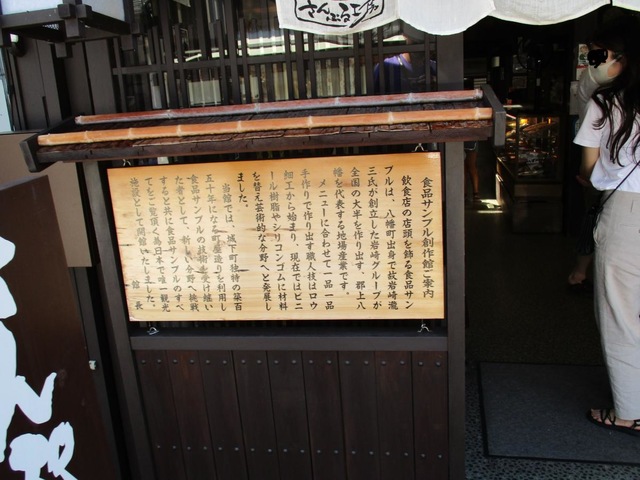 さんぷる工房
食品サンプル創作館ご案内
飲食店の店頭を飾る食品サン
プルは、八幡町出身で故岩崎瀧
三氏が創立した岩崎グループが
全国の大半を作り出す、郡上八
幡を代表する地場産業です。
メニューに合わせて一品一品
手作りで作り出す職人技はロウ
細工から始まり、現在ではビニ
ール樹脂やシリコンゴムに材料
を替え芸術的な分野へと発展し
ました。
当館では、城下町独特の築百
五十年になる町屋造りを利用し
食品サンプルの技術を受け継い
だ者として、新しい分野へ挑戦
すると共に食品サンプルのすべ
てをご覧頂く為日本で唯一観光
施設として開館いたしました。
館長